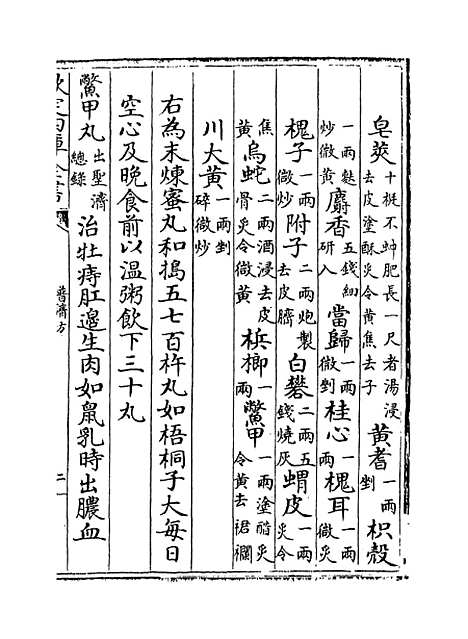 皂莢十梃不蚛肥長一尺者湯浸去皮塗酥炙令黃焦去子黃耆一兩剉枳殼
一兩麩炒微黃麝香五錢細研入當歸一兩微剉桂心一兩槐耳一兩微炙
槐子一兩微炒附子二兩炮製去皮臍白礬二兩五錢燒灰蝟皮一兩炙令
焦黃烏蛇二兩酒浸去皮骨炙令微黃檳榔一兩鼈甲一兩塗醋炙令黃去裙襴
川大黃一兩剉碎微炒
右為末煉蜜丸和搗五七百杵丸如梧桐子大每日
空心及晚食前以温粥飲下三十丸
鼈甲丸出聖濟總錄治牡痔肛邊生肉如鼠乳時出膿血
普濟方